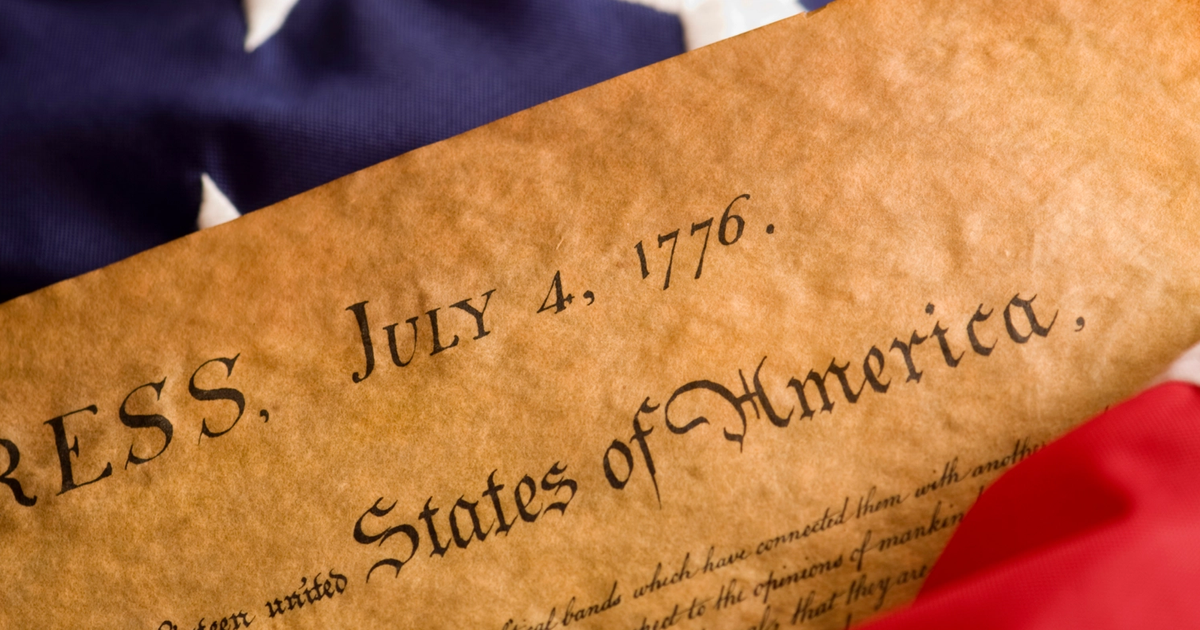 RESS, JULY 4, 1776.
united States of America,
bands which have connected them with another
to the opinions of mankind
that they are